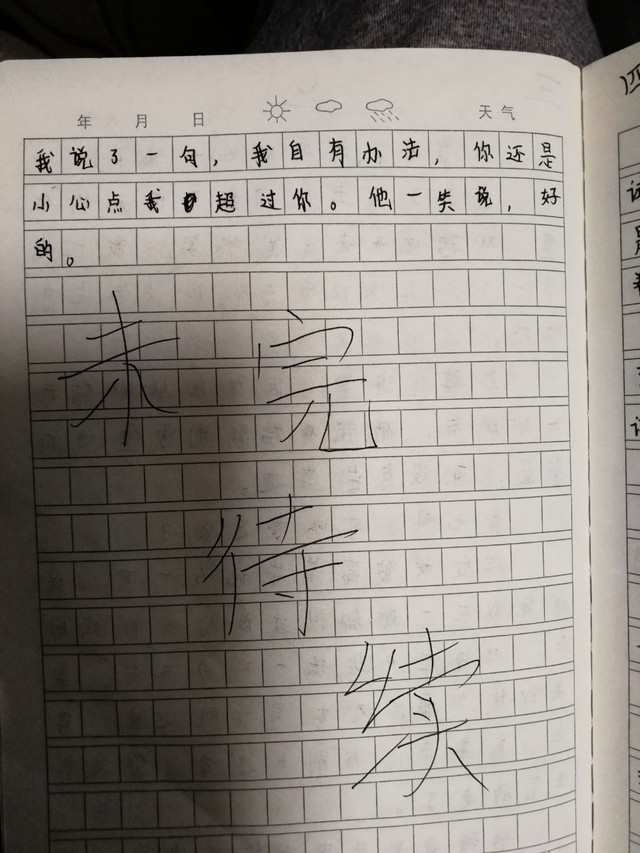 年 月 日 天气
我说了一句，我自有办法，你还是
小心点我超过你。他一笑说，好
的。
未完
待
续